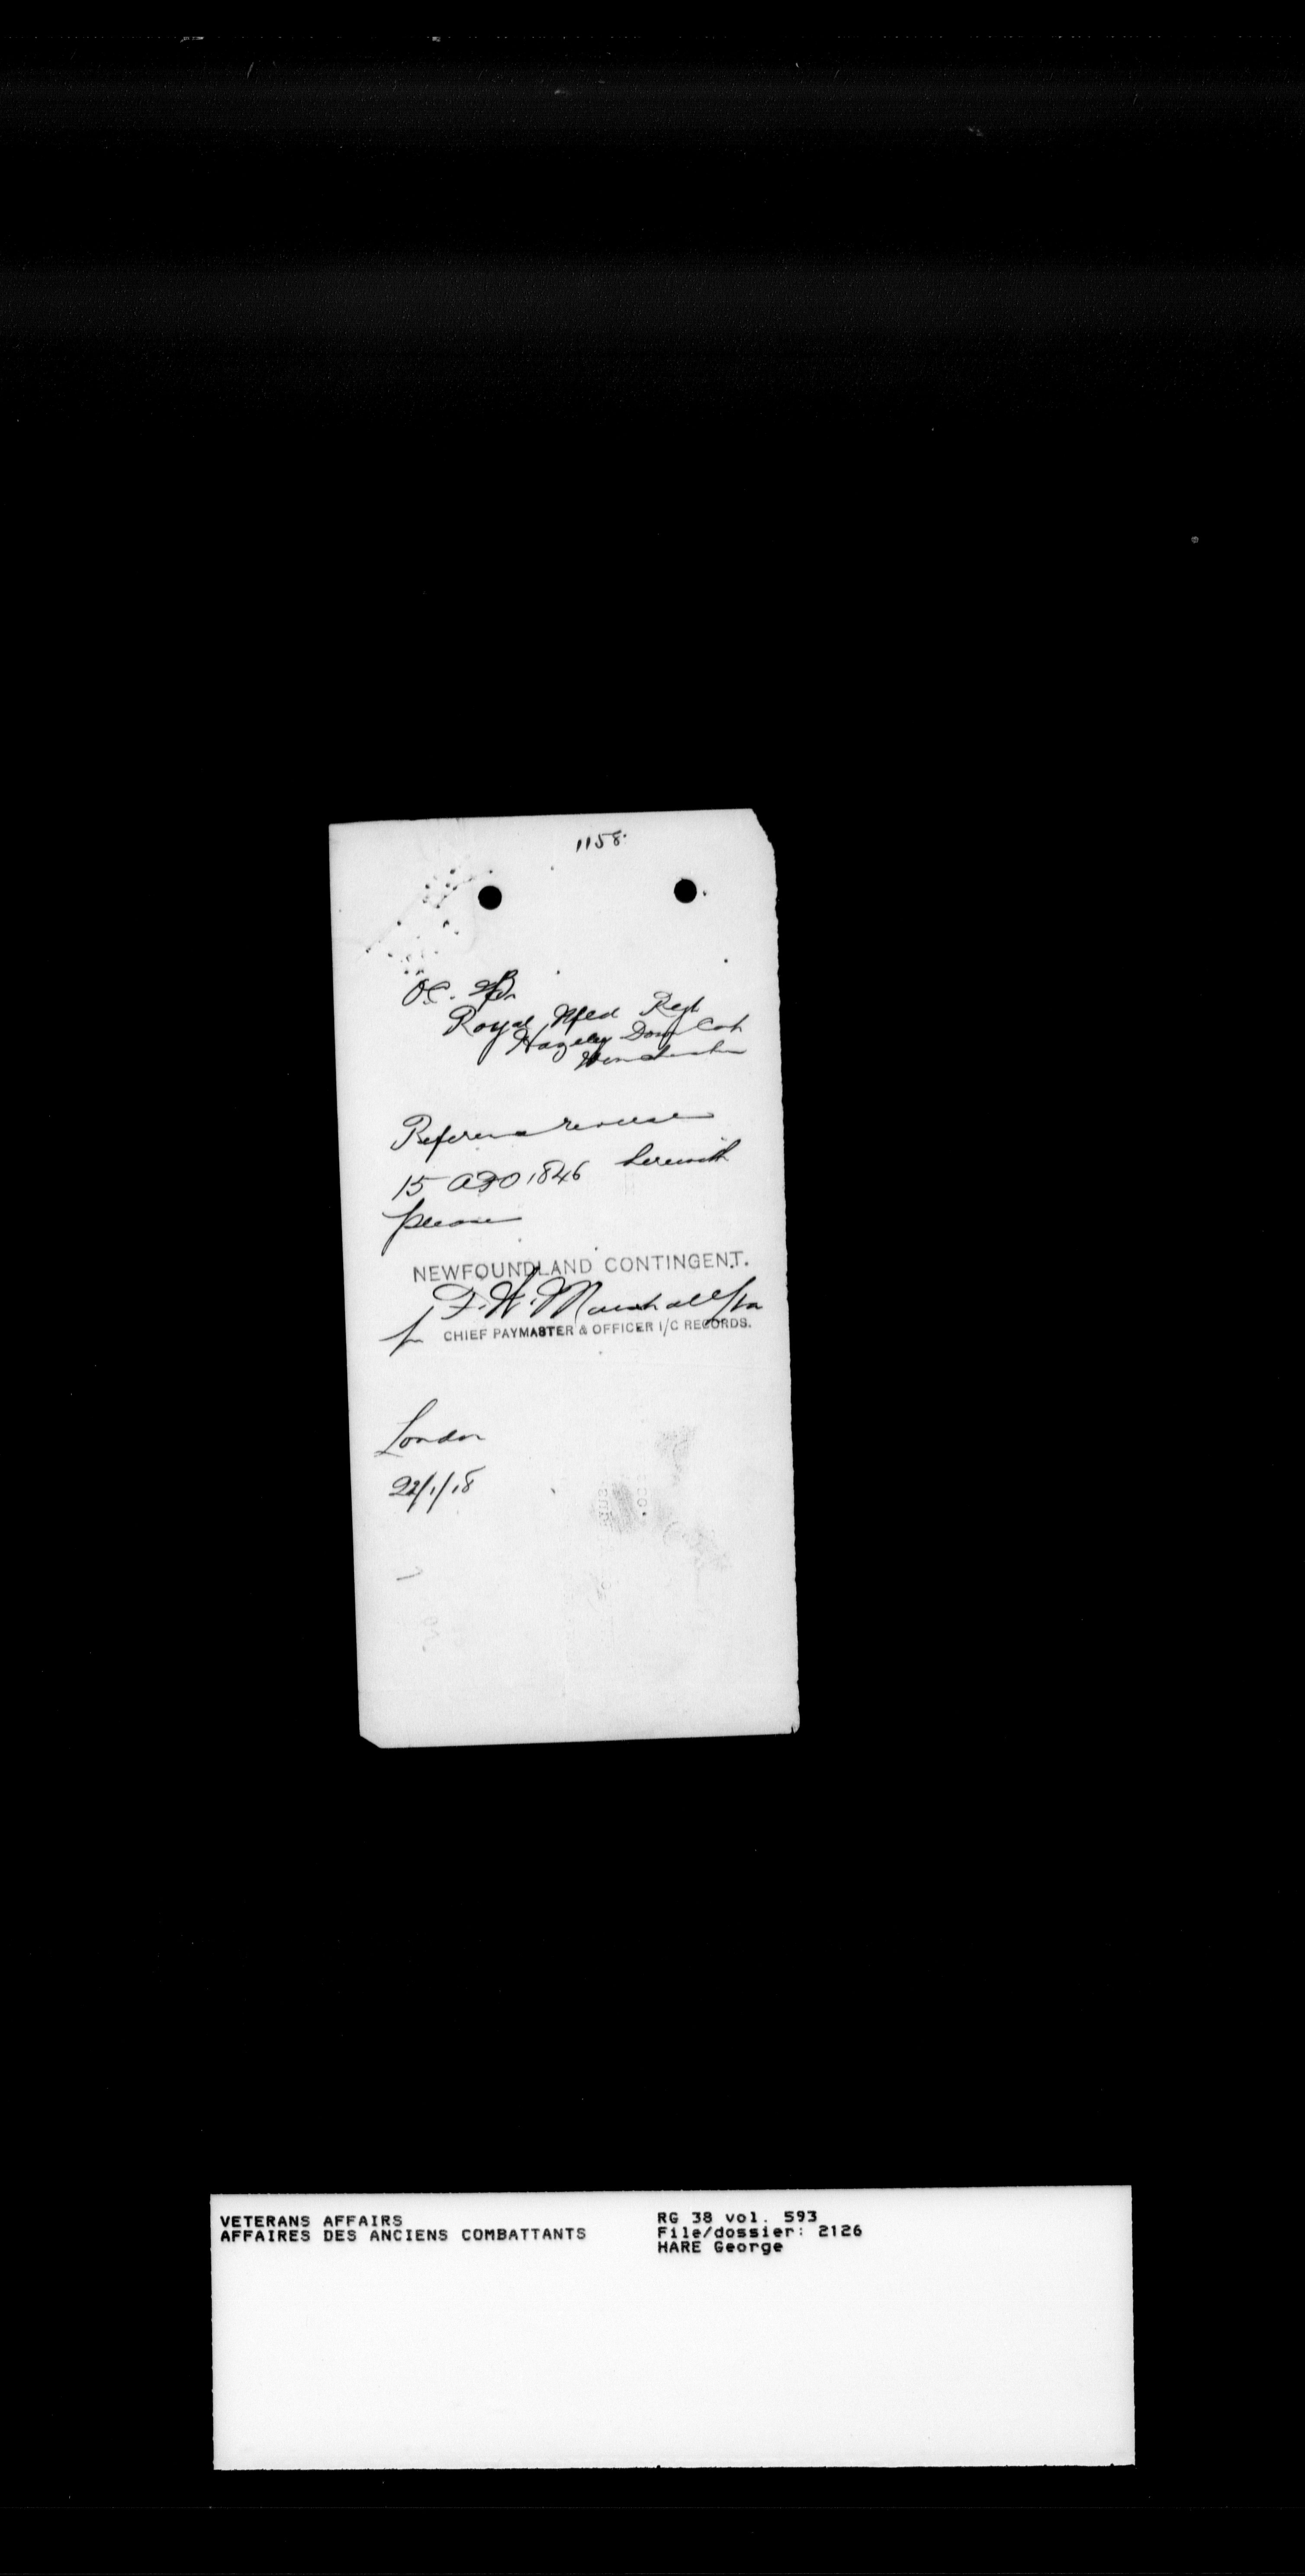 1158
O.C.
Royal Nfld Regt
Hazeley Down Cat
Winchester
Reference reverse
15 AFO 1846 herewith
please
NEWFOUNDLAND CONTINGENT.
F. W. Marshall
for CHIEF PAYMASTER & OFFICER I/C RECORDS.
London
22/1/18
VETERANS AFFAIRS
AFFAIRES DES ANCIENS COMBATTANTS
RG 38 vol. 593
File/dossier: 2126
HARE George